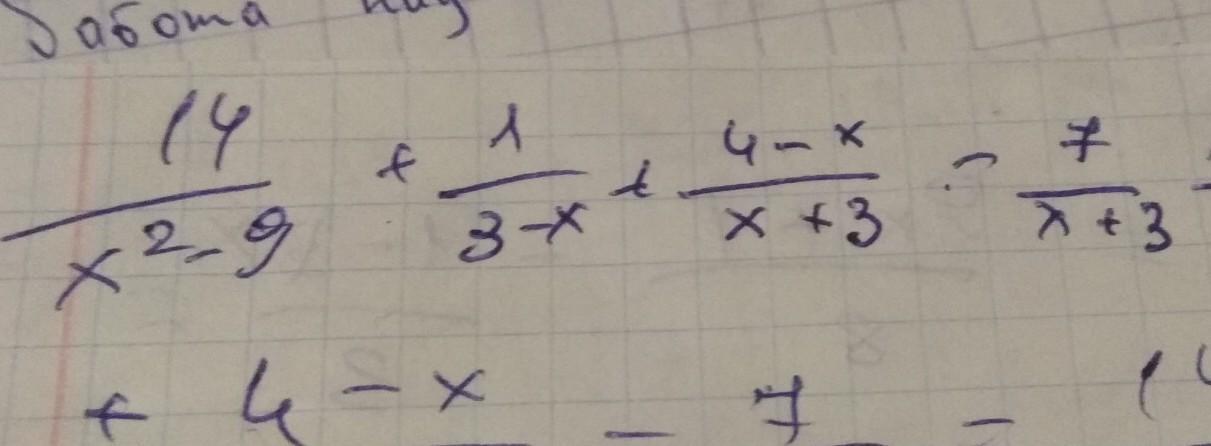 Работа над
14/(x²-9) + 1/(3-x) + (4-x)/(x+3) - 7/(x+3)
+ 4-x - 7 -